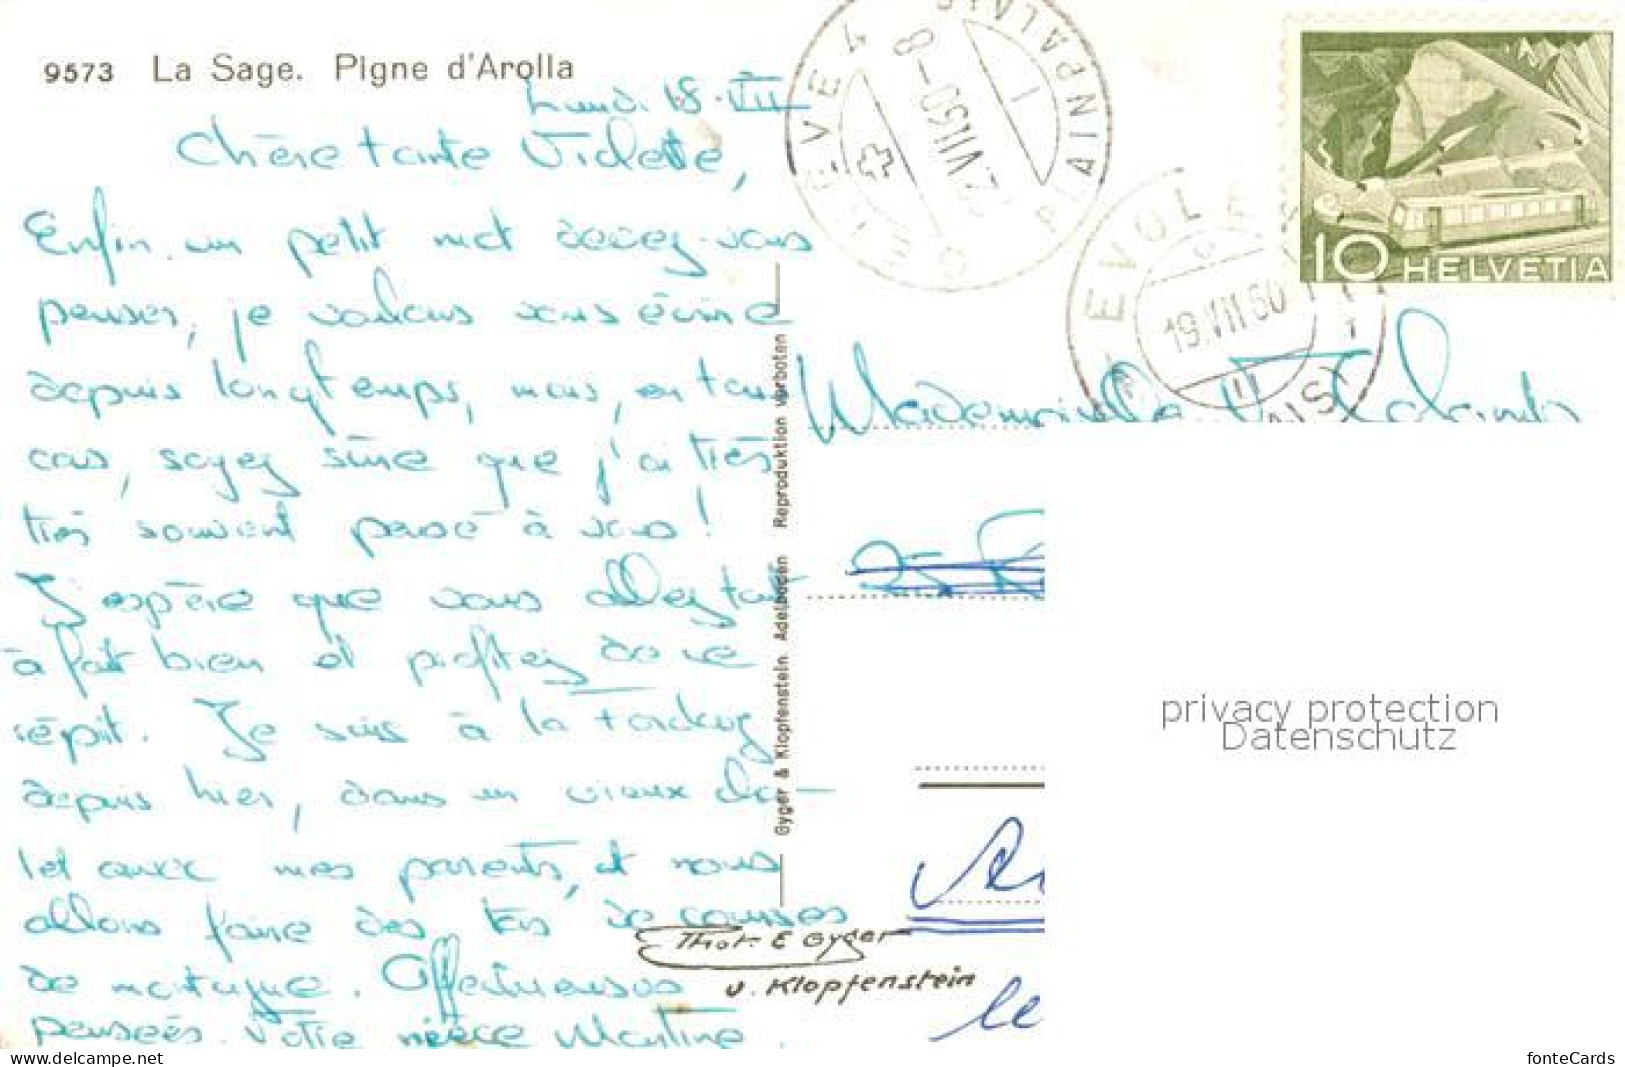 9573 La Sage. Pigne d'Arolla
Lundi 18.VII
Chère tante Violette,
Enfin un petit mot devez-vous
penser, je voulais vous écrire
depuis longtemps, mais, en tous
cas, soyez sûre que j'ai très
très souvent pensé à vous!
J'espère que vous allez tout
à fait bien et profitez de ce
répit. Je suis à la Forclaz
depuis hier, dans un vieux cha-
let avec mes parents, et nous
allons faire des tas de courses
de montagne. Affectueuses
pensées. Votre nièce Martine.
Gyger & Klopfenstein. Adelboden Reproduktion verboten
Phot. E Gyger
u. Klopfenstein
GENÈVE 4
PLAINPALAIS
22 VII 60-8
1
EVOLÈNE
19.VII 60
10 HELVETIA
Mademoiselle
privacy protection
Datenschutz
www.delcampe.net
fonteCards